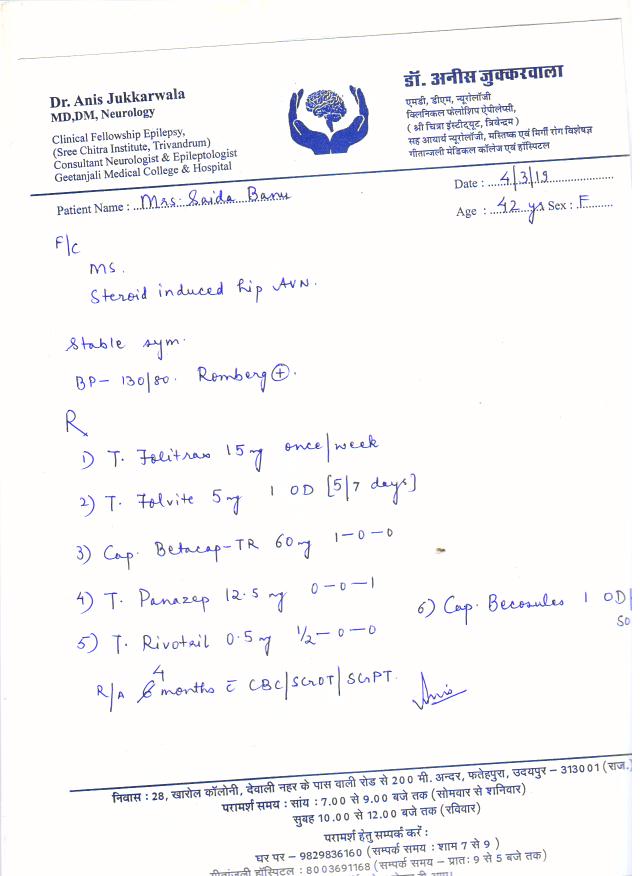 Dr. Anis Jukkarwala
MD,DM, Neurology
Clinical Fellowship Epilepsy,
(Sree Chitra Institute, Trivandrum)
Consultant Neurologist & Epileptologist
Geetanjali Medical College & Hospital
डॉ. अनीस जुक्करवाला
एमडी, डीएम, न्यूरोलॉजी
क्लिनिकल फेलोशिप ऐपीलेप्सी,
( श्री चित्रा इंस्टीट्यूट, त्रिवेन्द्रम )
सह आचार्य न्यूरोलॉजी, मस्तिष्क एवं मिर्गी रोग विशेषज्ञ
गीतान्जली मेडिकल कॉलेज एवं हॉस्पिटल
Date : 4/3/19
Patient Name : Mrs. Saida Banu
Age : 42 yrs Sex : F
F/c
MS.
Steroid induced hip AVN.
Stable sym.
BP- 130/80. Romberg +.
R
1) T. Folitrax 15 mg once/week
2) T. Folvite 5 mg 1 OD [5/7 days]
3) Cap. Betacap-TR 60 mg 1-0-0
4) T. Panazep 12.5 mg 0-0-1
5) T. Rivotril 0.5 mg 1/2-0-0
6) Cap. Becosules 1 OD/
SO
R/A 4 months c̄ CBC/SGOT/SGPT.
Anis
निवास : 28, खारोल कॉलोनी, देवाली नहर के पास वाली रोड से 200 मी. अन्दर, फतेहपुरा, उदयपुर – 313001 (राज.)
परामर्श समय : सांय : 7.00 से 9.00 बजे तक (सोमवार से शनिवार)
सुबह 10.00 से 12.00 बजे तक (रविवार)
परामर्श हेतु सम्पर्क करें :
घर पर – 9829836160 (सम्पर्क समय : शाम 7 से 9 )
गीतांजली हॉस्पिटल : 8003691168 (सम्पर्क समय – प्रातः 9 से 5 बजे तक)